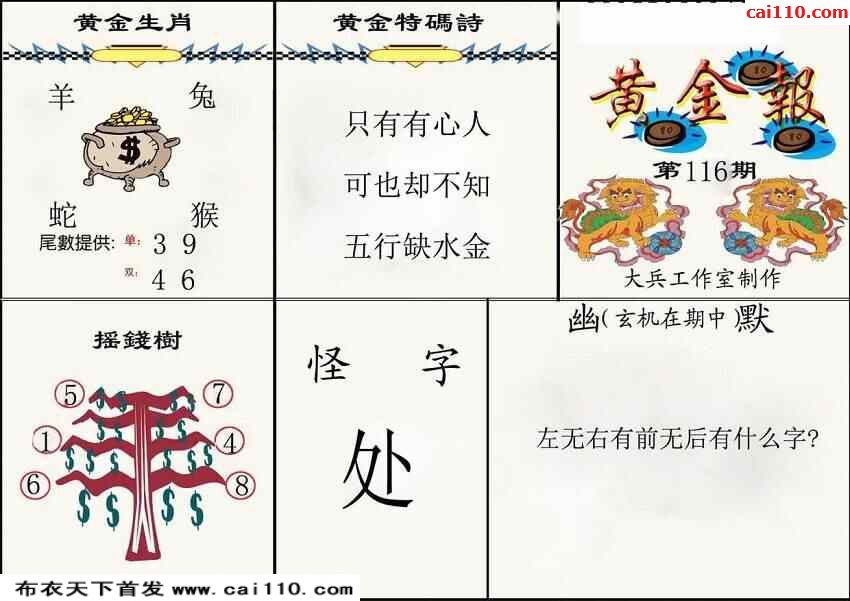 cai110.com
黄金生肖
羊 兔
$
蛇 猴
尾數提供: 单: 3 9
双: 4 6
黄金特碼詩
只有有心人
可也却不知
五行缺水金
黄金報
80
80
80
第116期
大兵工作室制作
摇錢樹
5 7
1 4
6 8
怪 字
处
幽(玄机在期中)默
左无右有前无后有什么字?
布衣天下首发 www.cai110.com